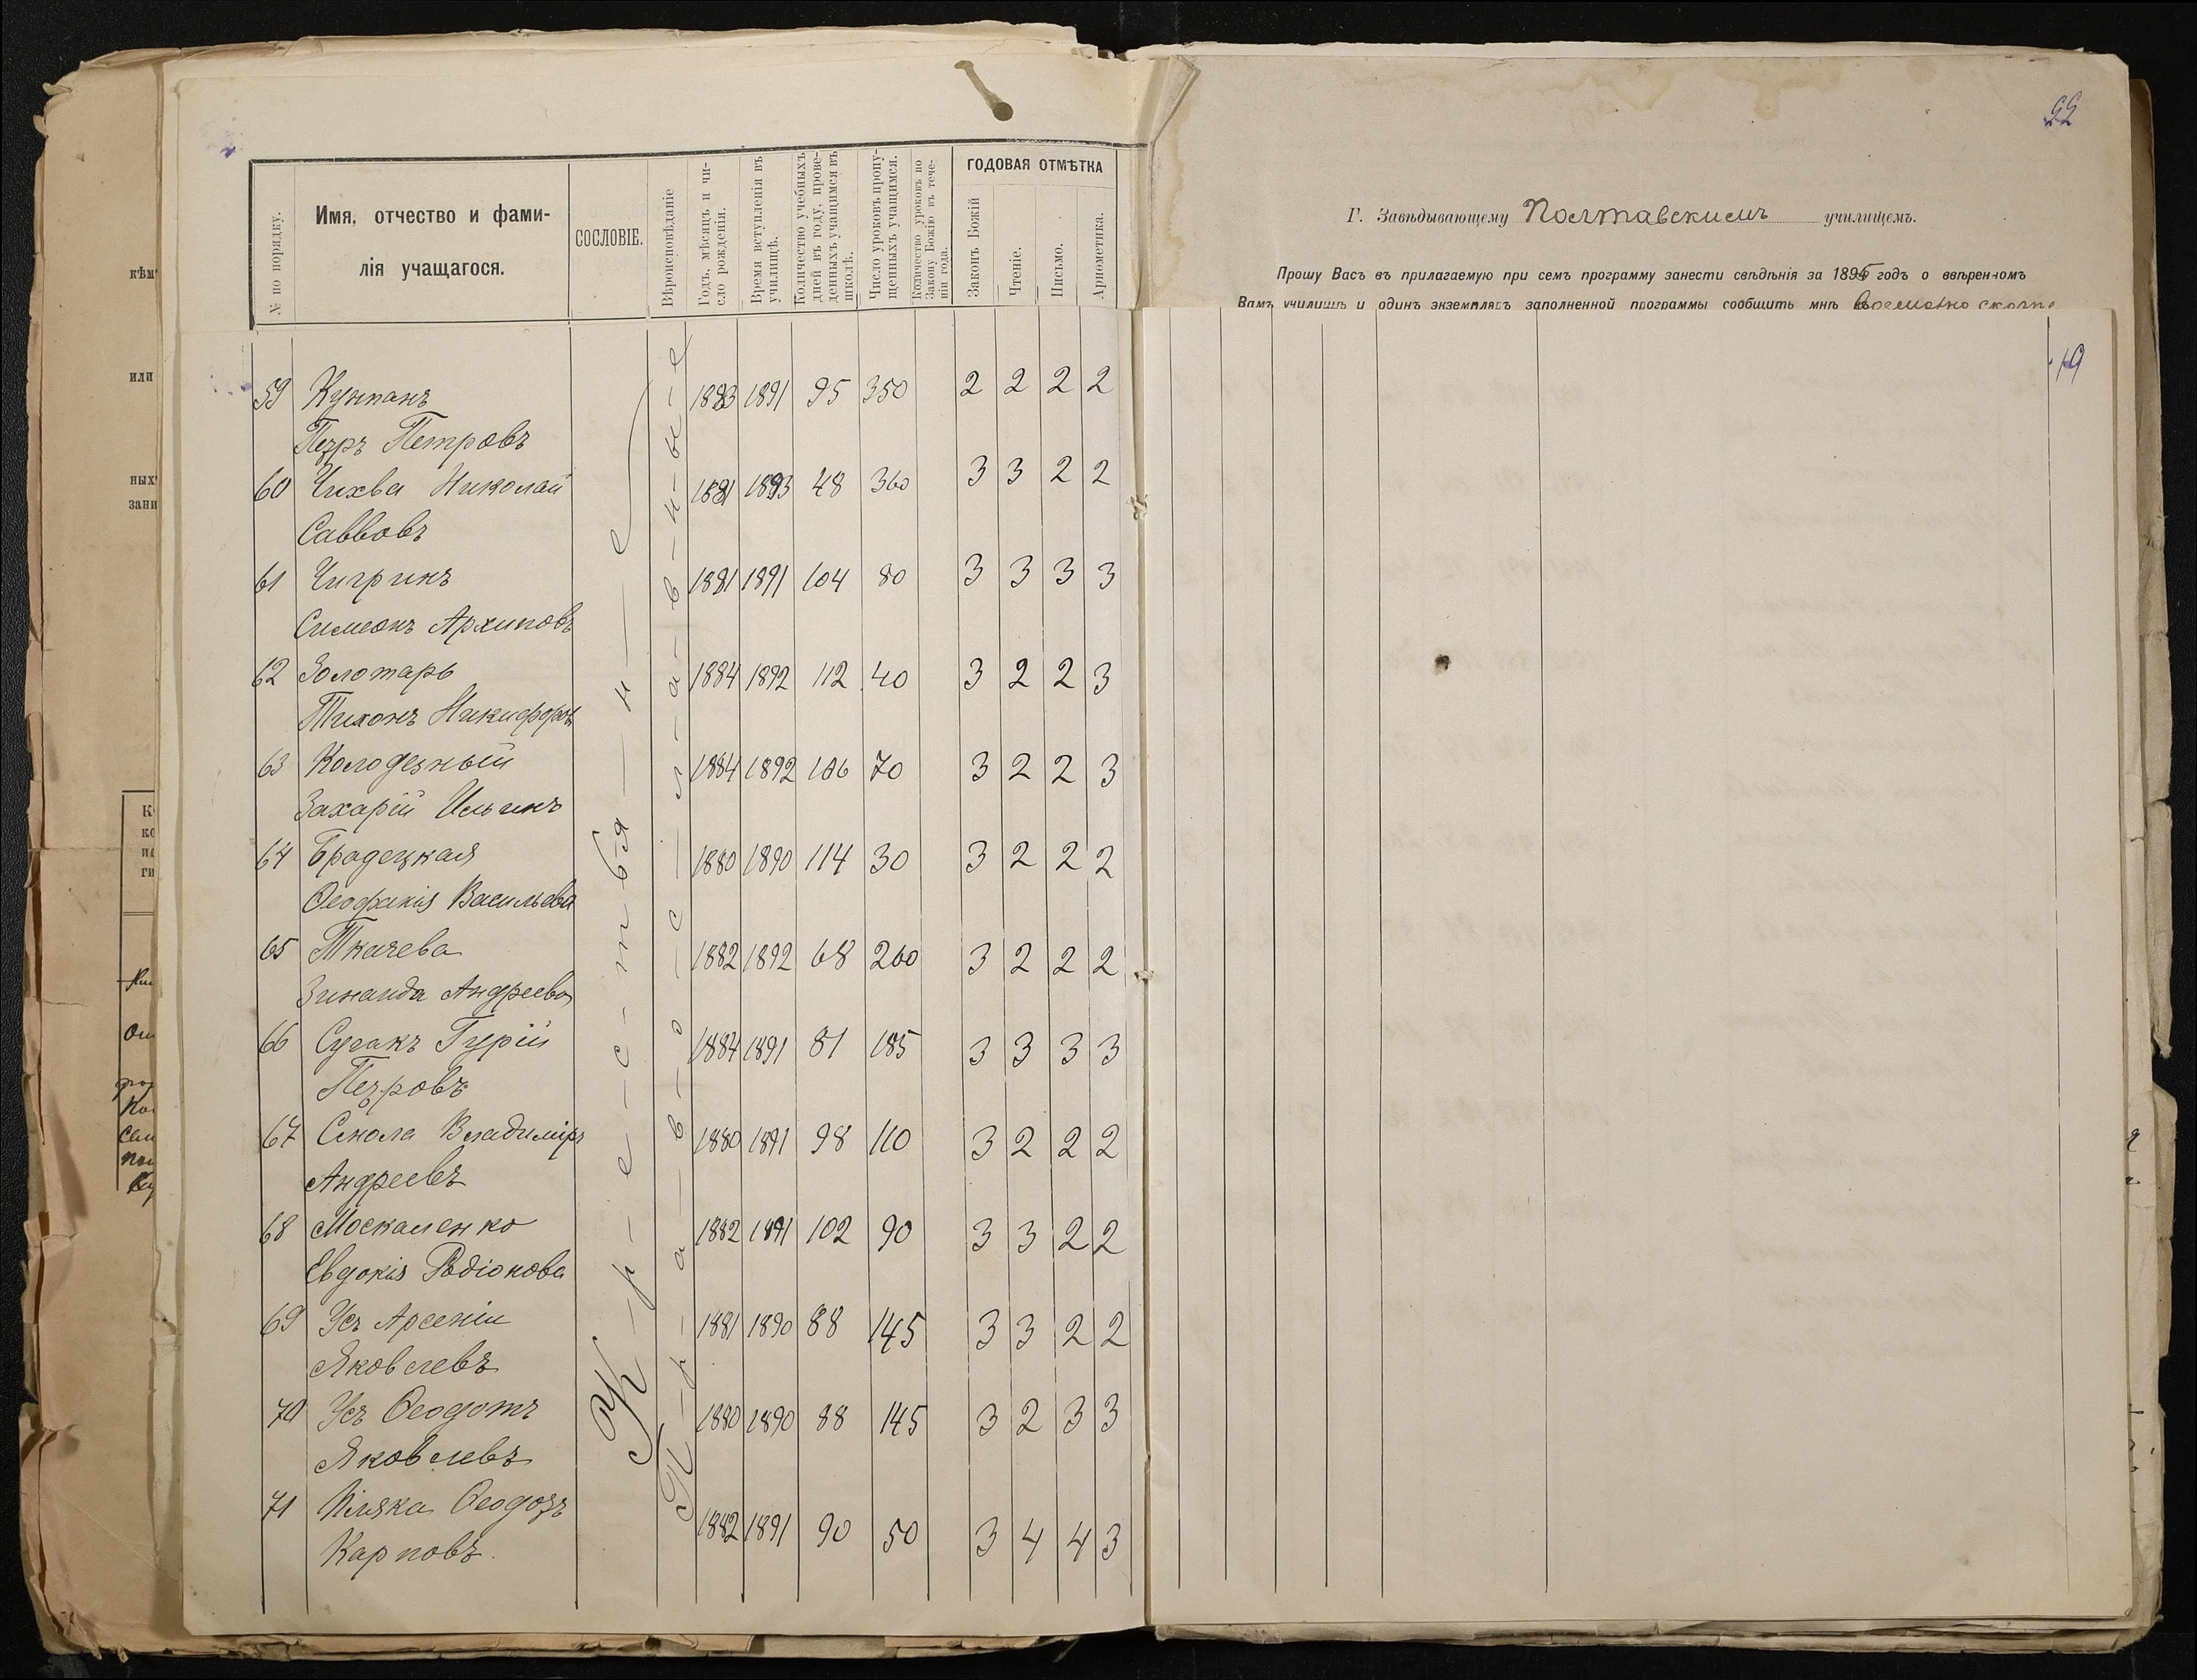 22
Г. Завѣдывающему Полтавскимъ училищемъ.
Прошу Васъ въ прилагаемую при семъ программу занести свѣдѣнія за 1895 годъ о ввѣренномъ
Вамъ училищѣ и одинъ экземпляръ заполненной программы сообщить мнѣ
19
№ по порядку.
Имя, отчество и фами-
лія учащагося.
СОСЛОВІЕ.
Вѣроисповѣданіе
Годъ, мѣсяцъ и чи-
сло рожденія.
Время вступленія въ
училищѣ.
Количество учебныхъ
дней въ году, прове-
денныхъ учащимся въ
школѣ.
Число уроковъ пропу-
щенныхъ учащимся.
Количество уроковъ по
Закону Божію въ тече-
ніи года.
ГОДОВАЯ ОТМѢТКА
Законъ Божій
Чтеніе.
Письмо.
Ариѳметика.
К-р-е-с-т-ья-н-е
П-р-а-в-о-с-л-а-в-н-ы-е
59 Кунпанъ 1883 1891 95 350 2 2 2 2
Петръ Петровъ
60 Чихва Николай 1881 1893 48 360 3 3 2 2
Саввовъ
61 Чигринъ 1881 1891 104 80 3 3 3 3
Симеонъ Архиповъ
62 Золотарь 1884 1892 112 40 3 2 2 3
Тихонъ Никифоровъ
63 Колодезный 1884 1892 106 70 3 2 2 3
Захарій Ильинъ
64 Брадецкая 1880 1890 114 30 3 2 2 2
Ѳеофанія Васильева
65 Ткачева 1882 1892 68 260 3 2 2 2
Зинаида Андреева
66 Судакъ Гурій 1884 1891 81 185 3 3 3 3
Петровъ
67 Смола Владиміръ 1880 1891 98 110 3 2 2 2
Андреевъ
68 Москаленко 1882 1891 102 90 3 3 2 2
Евдокія Родіонова
69 Усъ Арсеній 1881 1890 88 145 3 3 2 2
Яковлевъ
70 Усъ Ѳеодотъ 1880 1890 88 145 3 2 3 3
Яковлевъ
71 Ѳеодотъ 1882 1891 90 50 3 4 4 3
Карповъ.